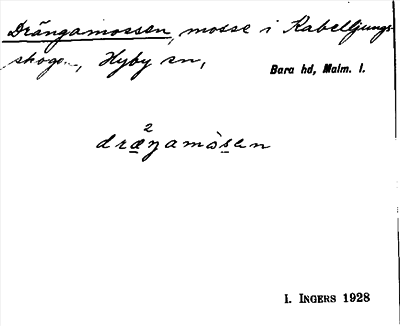 Drängamossen, mosse i Kabelljungs-
skogen, Hyby sn,
Bara hd, Malm. l.
dræ²ŋamòsen
I. INGERS 1928